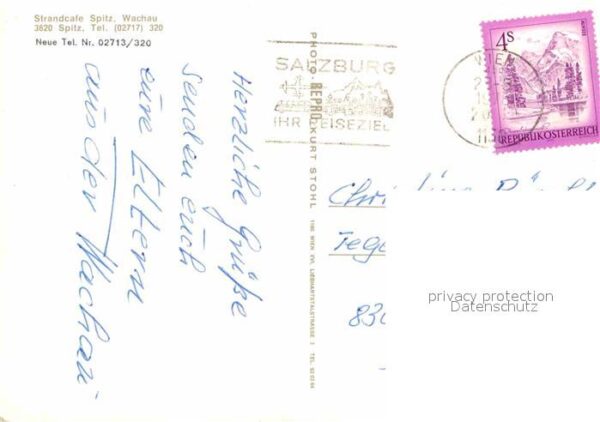 Strandcafe Spitz, Wachau
3620 Spitz, Tel. (02717) 320
Neue Tel. Nr. 02713/320
Herzliche Grüße
senden euch
eure Eltern
aus der Wachau
PHOTO-REPRO KURT STOHL
1160 WIEN XVI, LIEBHARTSTALSTRASSE
SALZBURG
IHR REISEZIEL
WIEN
4S
REPUBLIK ÖSTERREICH
privacy protection
Datenschutz